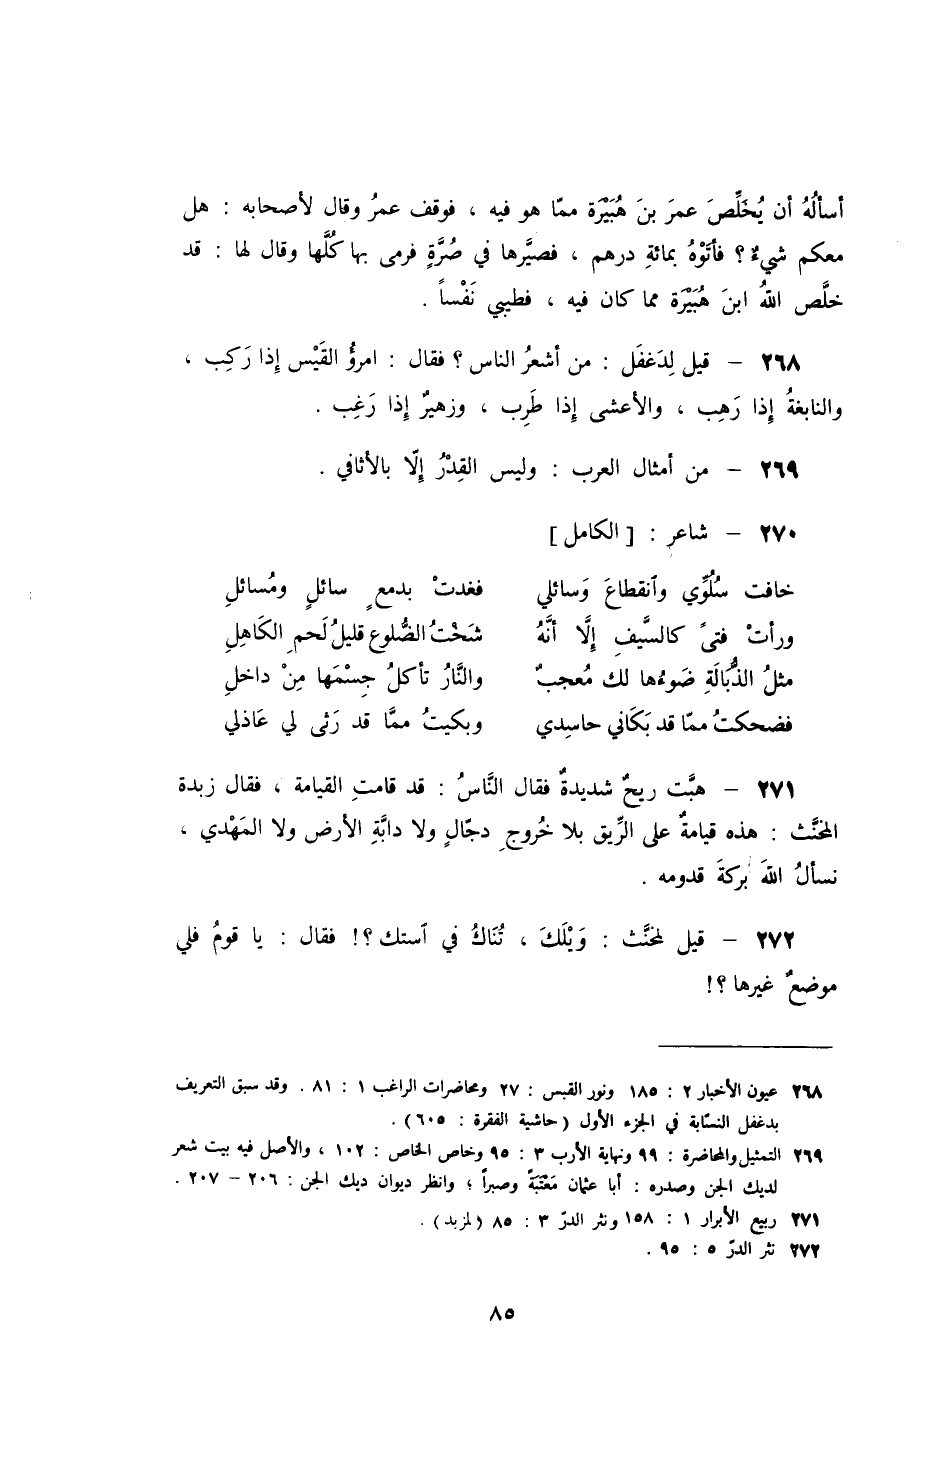 أسألُهُ أن يُخَلِّصَ عمرَ بنَ هُبَيْرَة ممّا هو فيه ، فوقف عمرُ وقال لأصحابه : هل
معكم شيءٌ ؟ فأتَوْهُ بمائةِ درهم ، فصيَّرها في صُرَّةٍ فرمى بها كُلَّها وقال لها : قد
خلَّص اللهُ ابنَ هُبَيْرَة مما كان فيه ، فطيبي نَفْساً .
٢٦٨ – قيل لِدَغفَل : من أشعرُ الناس ؟ فقال : امرؤُ القَيْس إذا رَكِب ،
والنابغةُ إذا رَهِب ، والأعشى إذا طَرِب ، وزهيرٌ إذا رَغِب .
٢٦٩ – من أمثال العرب : وليس القِدْرُ إلّا بالأثافي .
٢٧٠ – شاعر : [ الكامل ]
خافت سُلُوِّي وٱنقطاعَ وَسائلي فغدتْ بدمعٍ سائلٍ ومُسائلِ
ورأتْ فتىً كالسَّيفِ إلَّا أنَّهُ شَخْتُ الضُّلوعِ قليلُ لَحمِ الكَاهِلِ
مثلُ الذُّبَالَةِ ضَوءُها لك مُعجبٌ والنَّارُ تأكلُ جِسْمَها مِنْ داخلِ
فضحكتُ ممّا قد بَكَاني حاسِدي وبكيتُ ممَّا قد رَثى لي عَاذلي
٢٧١ – هبَّت ريحٌ شديدةٌ فقال النَّاسُ : قد قامتِ القيامة ، فقال زبدة
المخنَّث : هذه قيامةٌ على الرِّيق بلا خُروجِ دجّالٍ ولا دابَّةِ الأرض ولا المَهْدي ،
نسألُ اللهَ بركةَ قدومه .
٢٧٢ – قيل لمخنَّث : وَيْلَكَ ، تُنَاكُ في ٱستك ؟! فقال : يا قومُ فلي
موضعٌ غيرها ؟!
٢٦٨ عيون الأخبار ٢ : ١٨٥ ونور القبس : ٢٧ ومحاضرات الراغب ١ : ٨١ . وقد سبق التعريف
بدغفل النسّابة في الجزء الأول ( حاشية الفقرة : ٦٠٥ ) .
٢٦٩ التمثيل والمحاضرة : ٩٩ ونهاية الأرب ٣ : ٩٥ وخاص الخاص : ١٠٢ ، والأصل فيه بيت شعر
لديك الجن وصدره : أبا عثمان مَعْتَبَةً وصبراً ؛ وانظر ديوان ديك الجن : ٢٠٦ – ٢٠٧ .
٢٧١ ربيع الأبرار ١ : ١٥٨ ونثر الدرّ ٣ : ٨٥ ( لمزبد ) .
٢٧٢ نثر الدرّ ٥ : ٩٥ .
٨٥